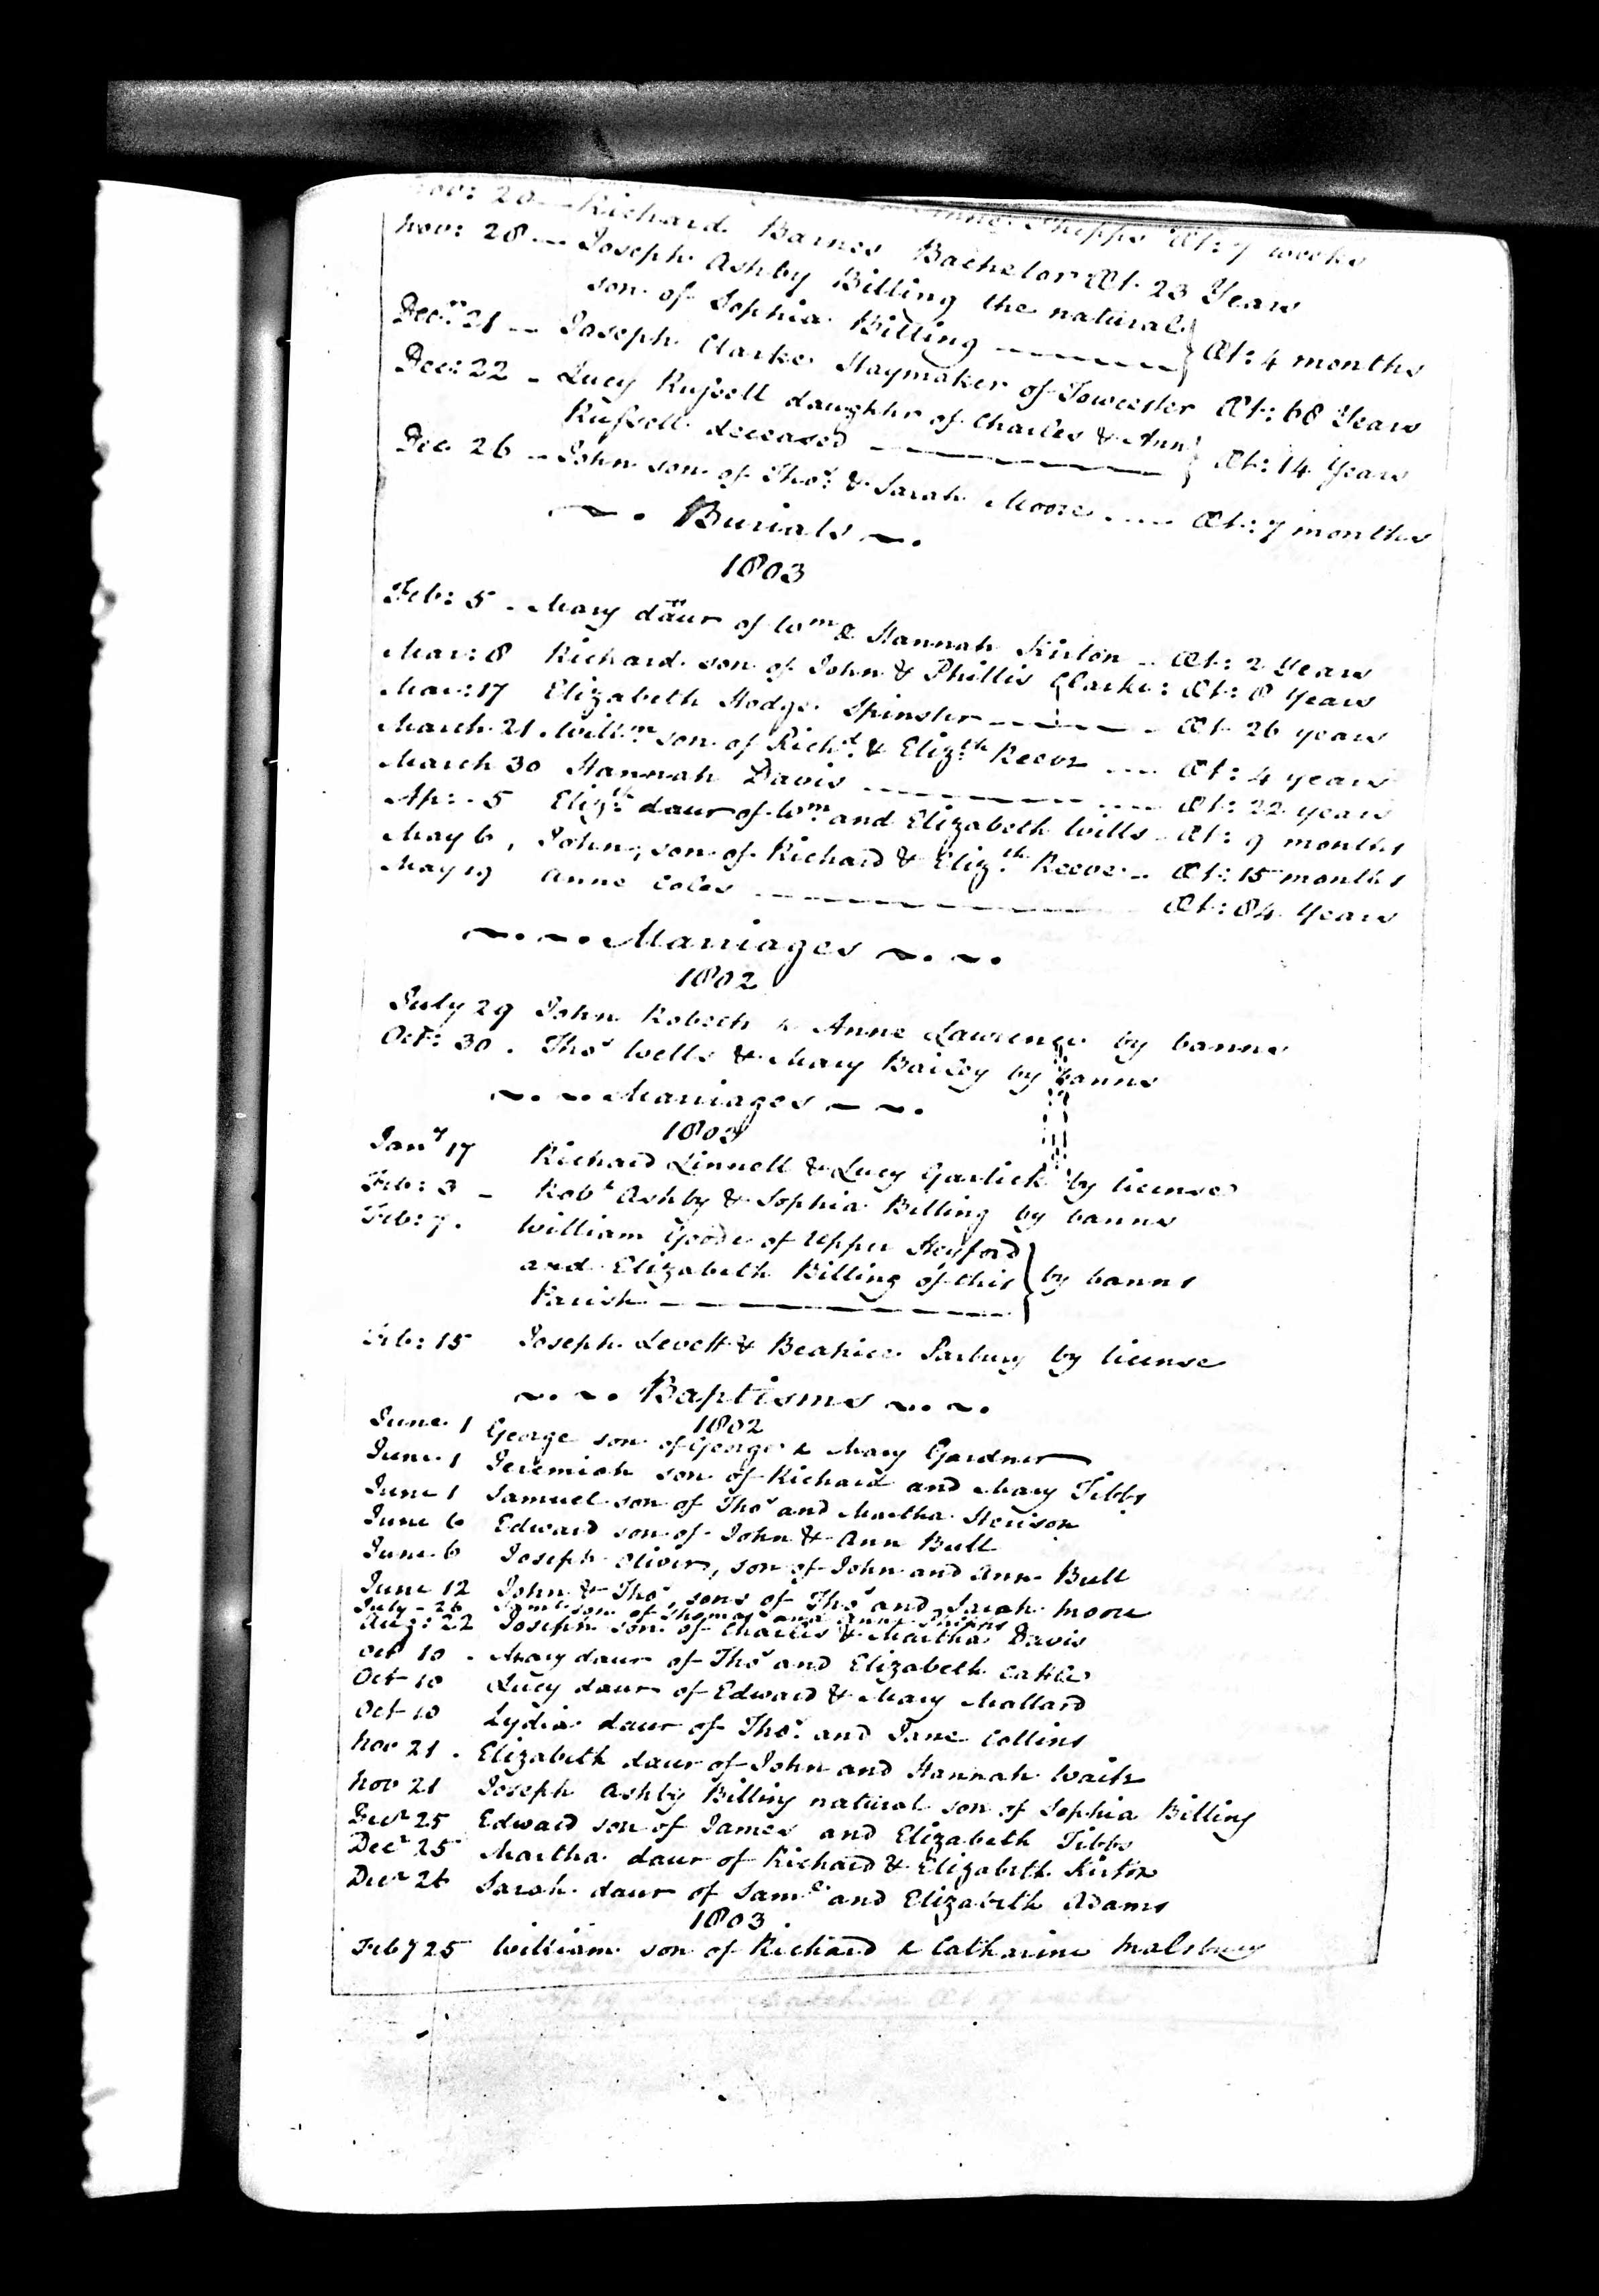 Shipps Æt: 7 weeks
Nov: 20 — Richard Barnes Bachelor Æt. 23 Years
Nov: 28 — Joseph Ashby Billing the natural
son of Sophia Billing — — — Æt: 4 months
Decr. 21 — Joseph Clarke Staymaker of Towcester Æt: 68 Years
Dec: 22 — Lucy Russell daughter of Charles & Ann
Russell deceased — — — Æt: 14 Years
Dec 26 — John son of Thos. & Sarah Moore .... Æt: 7 months
~ . Burials ~ .
1803
Feb: 5 . Mary daur of Wm & Hannah Kirton .. Æt: 2 Years
Mar: 8 Richard son of John & Phillis Clarke: Æt: 8 Years
Mar: 17 Elizabeth Hodge Spinster — — — Æt. 26 years
March 21 . Willm son of Richd. & Elizth Reeve .... Æt: 4 years
March 30 Hannah Davis — — — Æt: 22 years
Ap: . 5 Elizth daur of Wm. and Elizabeth Wills . Æt: 9 months
May 6 , John, son of Richard & Elizth Reeve .. Æt: 15 months
May 19 Anne Coles — — — Æt: 84 Years
~ . ~ . Marriages ~ . ~ .
1802
July 29 John Roberts & Anne Lawrence by banns
Oct: 30 . Thos Wells & Mary Bailey by banns
~ . ~ . Marriages ~ ~ .
1803
Jany 17 Richard Linnell & Lucy Garlick by license
Feb: 3 — Robt Ashby & Sophia Billing by banns
Feb: 7 . William Goode of Upper Heyford
and Elizabeth Billing of this by banns
Parish — — —
Feb: 15 Joseph Levett & Beatrice Parbury by license
~ . ~ . Baptisms ~ . ~ .
1802
June 1 George son of George & Mary Gardner
June 1 Jeremiah son of Richard and Mary Tibbs
June 1 Samuel son of Thos and Martha
June 6 Edward son of John & Ann Bull
June 6 Joseph Oliver, son of John and Ann Bull
June 12 John & Thos, sons of Thos and Sarah Moore
July - 26 Saml son of Thomas and Anne Shipps
Aug: 22 Joseph son of Charles & Martha Davis
Oct 10 . Mary daur of Thos and Elizabeth Cattle
Oct 10 Lucy daur of Edward & Mary Mallard
Oct 10 Lydia daur of Thos. and Jane Collins
Nov 21 . Elizabeth daur of John and Hannah Waite
Nov 21 Joseph Ashby Billing natural son of Sophia Billing
Decr 25 Edward son of James and Elizabeth Tibbs
Decr 25 Martha daur of Richard & Elizabeth Kirton
Decr 26 Sarah daur of Saml and Elizabeth Adams
1803 .
Feby 25 William son of Richard & Catharine Malsbury